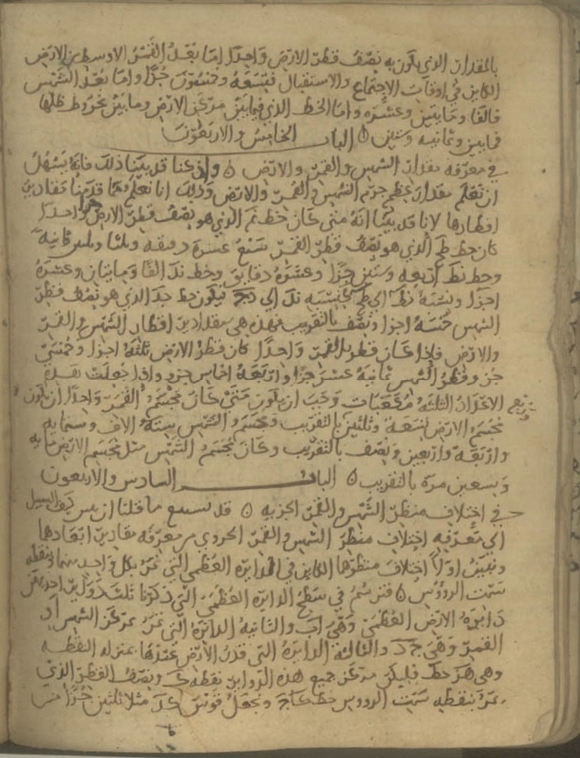 بالمقدار الذي يكون به نصف قطر الارض واحدا اما بعد الشمس الاوسط من الارض
الكاين في اوقات الاجتماع والاستقبال فتسعه وخمسون جزا واما بعد الشمس
فالفا ومايتين وعشره واما الخط الذي فيما بين مركز الارض وما بين مخروط ظلها
فمايتين وثمانيه وستين الباب الخامس والاربعون
في معرفه مقدار الشمس والقمر والارض واذ كنا قد بينا ذلك فانه يسهل
ان نعلم مقدار عظم جرم الشمس والقمر والارض وذلك انا نعلم مما قدمنا مقادير
اقطارها لانا قد بينا انه متى كان خط نم الذي هو نصف قطر الارض جزا واحدا
كان خط طح الذي هو نصف قطر القمر سبع عشره دقيقه وثلثا وثلثين ثانيه
وخط نط اربعه وستين جزا وعشره دقايق وخط ند الفا ومايتان وعشره
اجزا ونسبه نط الى طح كنسبه ند الى دج فيكون خط جد الذي هو نصف قطر
الشمس خمسه اجزا ونصف بالتقريب فهذه هي مقادير اقطار الشمس والقمر
والارض فاذا كان قطر القمر واحدا كان قطر الارض ثلثه اجزا وخمسي
جزو وقطر الشمس ثمانيه عشر جزا واربعه اخماس جزو واذا جعلت هذه
الاعداد الثلثه مكعبات وجب ان يكون متى كان مجسم القمر واحدا ان يكون
مجسم الارض تسعه وثلثين بالتقريب ومجسم الشمس سته الاف وستمايه
واربعه واربعين ونصف بالتقريب وكان مجسم الشمس مثل مجسم الارض مايه
وسبعين مره بالتقريب الباب السادس والاربعون
في اختلاف منظر الشمس والقمر الجزيه قد يتبع ما قلنا ان نبين كيف السبيل
الى معرفه اختلاف منظر الشمس والقمر الجزوي من معرفه مقادير ابعادها
ونبين اولا اختلاف منظرها الكاين في الدايره العظمى التي تمر بكل واحد منهما وبنقطه
سمت الرووس فنرسم في سطح الدايره العظمى التي ذكرنا ثلث دواير احديهن
دايره الارض العظمى وهي اب والثانيه الدايره التي تمر بمركز الشمس او
القمر وهي جد والثالثه الدايره التي قدر الارض عندها بمنزله النقطه
وهي هز حط فليكن مركز جميع هذه الدواير نقطه ك ونصف القطر الذي
يمر بنقطه سمت الرووس خط كاج ونجعل قوس جد مثلا ثلثين جزا من